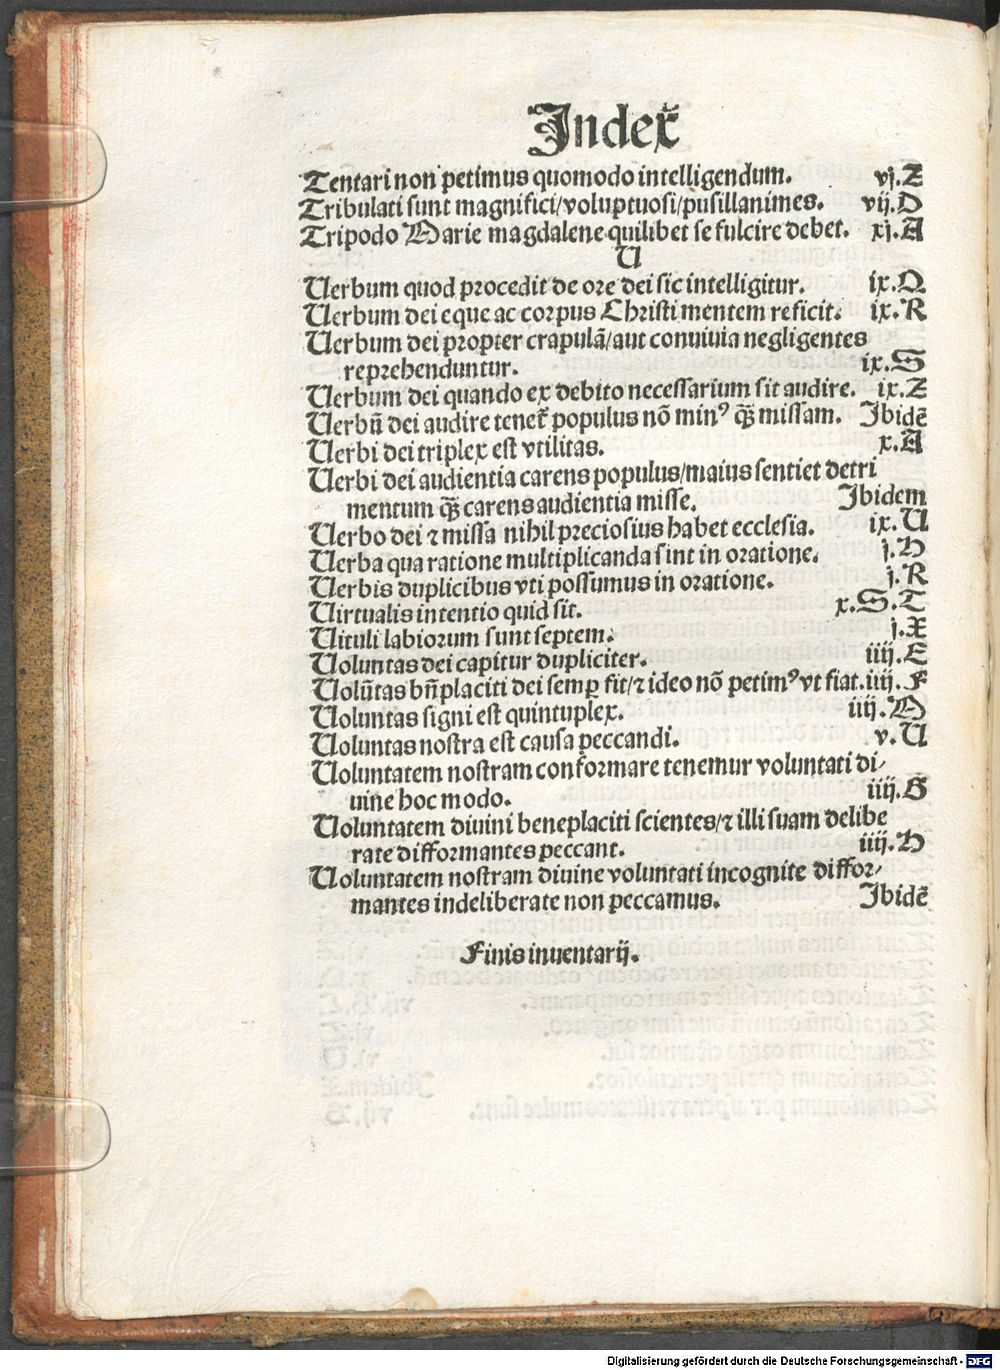 Index
Tentari non petimus quomodo intelligendum. vj.Z
Tribulati sunt magnifici/voluptuosi/pusillanimes. vij.D
Tripodo Marie magdalene quilibet se fulcire debet. xj.A
U
Uerbum quod procedit de ore dei sic intelligitur. ix.Q
Uerbum dei eque ac corpus Christi mentem reficit. ix.R
Uerbum dei propter crapulā/aut conuiuia negligentes
reprehenduntur. ix.S
Uerbum dei quando ex debito necessarium sit audire. ix.Z
Uerbū dei audire tenet᷑ populus nō minꝰ q̄ꝫ missam. Ibidē
Uerbi dei triplex est vtilitas. x.A
Uerbi dei audientia carens populus/maius sentiet detri
mentum q̄ꝫ carens audientia misse. Ibidem
Uerbo dei ⁊ missa nihil preciosius habet ecclesia. ix.U
Uerba qua ratione multiplicanda sint in oratione. j.H
Uerbis duplicibus vti possumus in oratione. j.R
Uirtualis intentio quid sit. x.S.T
Uituli labiorum sunt septem. j.X
Uoluntas dei capitur dupliciter. iiij.E
Uolūtas bn̄placiti dei semꝑ fit/⁊ ideo nō petimꝰ vt fiat. iiij.F
Uoluntas signi est quintuplex. iiij.M
Uoluntas nostra est causa peccandi. v.U
Uoluntatem nostram conformare tenemur voluntati di/
uine hoc modo. iiij.G
Uoluntatem diuini beneplaciti scientes/⁊ illi suam delibe
rate difformantes peccant. iiij.H
Uoluntatem nostram diuine voluntati incognite diffor/
mantes indeliberate non peccamus. Ibidē
Finis inuentarij.
Digitalisierung gefördert durch die Deutsche Forschungsgemeinschaft - DFG